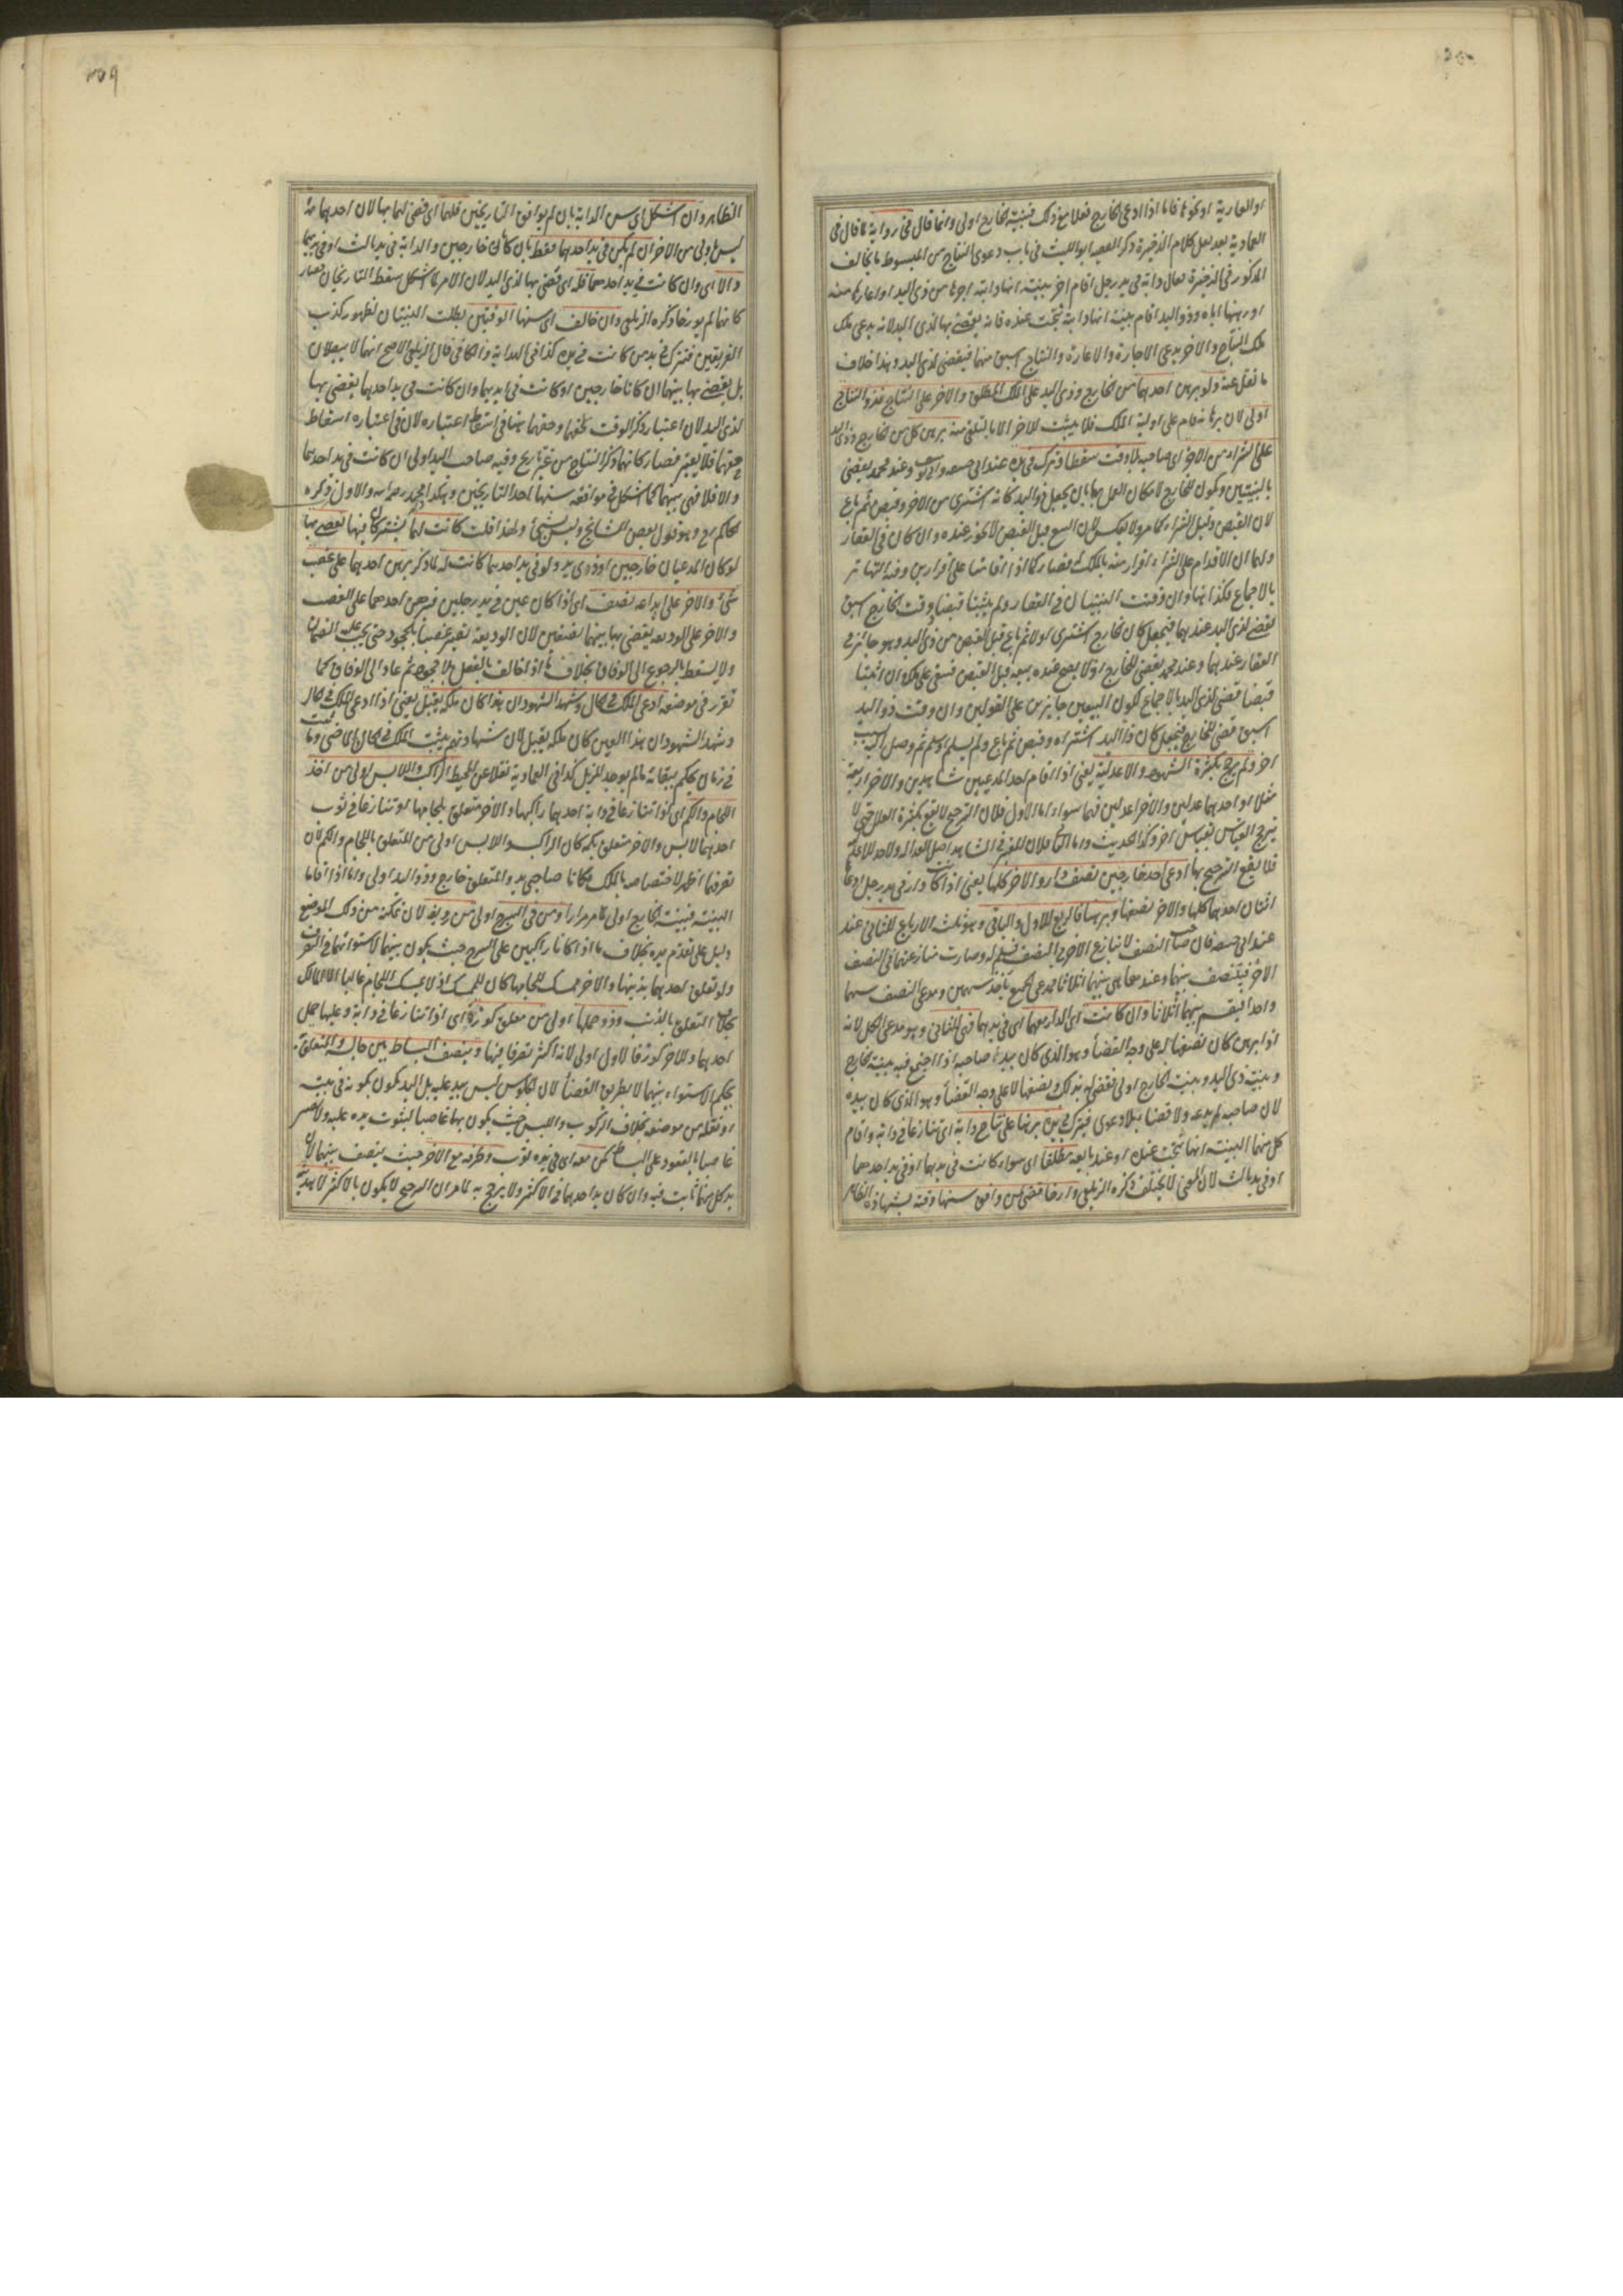 او العارية او نحوها فاما اذا ادعى الخارج فعلا مع ذلك فبينة الخارج اولى وانما قال فى رواية لما قال فى
العمادية بعد نقل كلام الذخيرة ذكر الفقيه ابو الليث فى باب دعوى النتاج من المبسوط ما يخالف
المذكور فى الذخيرة فقال دابة فى يد رجل اقام اخر بينة انها دابته اجرها من ذى اليد او اعارها منه
او رهنها اياه وذو اليد اقام بينة انها دابته نتجت عنده فانه يقضى بها لذى اليد لانه يدعى ملك
ملك النتاج والاخر يدعى الاجارة والاعارة والنتاج اسبق منهما فيقضى لذى اليد وهذا خلاف
ما نقل عنه ولو برهن احدهما من الخارج وذى اليد على الملك المطلق والاخر على النتاج فذو النتاج
اولى لان برهانه قام على اولية الملك فلا يثبت للاخر الا بالتلقى منه برهن كل من الخارج وذى اليد
على الشراء من الاخر اى صاحبه بلا وقت سقطا وترك فى يده عند ابى حنيفة وابى يوسف وعند محمد يقضى
بالبينتين ويكون للخارج لامكان العمل بهما بان يجعل ذو اليد كانه اشترى من الاخر وقبض ثم باع
لان القبض دليل الشراء كما مر ولا يعكس لان البيع قبل القبض لا يجوز عنده وان كان فى العقار
ولهما ان الاقدام على الشراء اقرار منه بالملك فصار كما اذا قامتا على اقرارين وفيه التهاتر
بالاجماع فكذا هنا وان وقتت البينتان فى العقار ولم يثبتا قبضا ووقت الخارج اسبق
يقضى لذى اليد عندهما فيجعل كان الخارج اشترى اولا ثم باع قبل القبض من ذى اليد وهو جائز فى
العقار عندهما وعند محمد يقضى للخارج اذ لا يصح عنده بيعه قبل القبض فبقى على ملكه وان اثبتا
قبضا قضى لذى اليد بالاجماع لكون البيعين جائزين على القولين وان وقت ذو اليد
اسبق قضى للخارج فيجعل كان ذا اليد اشتراه وقبض ثم باع ولم يسلم او سلم ثم وصل اليه بسبب
اخر ولم يرجح بكثرة الشهود والاعدلية يعنى اذا اقام احد المدعيين شاهدين والاخر اربعة
مثلا او احدهما عدلين والاخر اعدلين فهما سواء اما الاول فلان الترجيح لا يقع بكثرة العلل حتى لا
يترجح القياس بقياس اخر وكذا الحديث واما الثانى فلان المعتبر فى الشاهد اصل العدالة ولا حد للاعدلية
فلا يقع الترجيح بها ادعى احد خارجين نصف دار والاخر كلها يعنى اذا كانت دار فى يد رجل ادعاها
اثنان احدهما كلها والاخر نصفها وبرهنا فالربع للاول والباقى وهو ثلثة الارباع للثانى عند
عند ابى حنيفة فان صاحب النصف لا ينازع الاخر فى النصف فسلم له وصارت منازعتهما فى النصف
الاخر فيتنصف بينهما وعندهما هى بينهما اثلاثا فمدعى الجميع ياخذ سهمين ومدعى النصف سهما
واحدا فيقسم بينهما اثلاثا وان كانت اى الدار معهما اى فى يدهما فهى للثانى وهو مدعى الكل لانه
اذا برهن كان نصفها له على وجه القضاء وهو الذى كان بيد صاحبه اذا اجتمع فيه بينة الخارج
وبينة ذى اليد وبينة الخارج اولى فقضى له بذلك ونصفها لا على وجه القضاء وهو الذى كان بيده
لان صاحبه لم يدعه ولا قضاء بلا دعوى فيترك فى يده برهنا على نتاج دابة اى تنازعا فى دابة واقام
كل منهما البينة انها نتجت عنده او عند بائعه مطلقا اى سواء كانت فى يدهما او فى يد احدهما
او فى يد ثالث لان المعنى لا يختلف ذكره الزيلعى وارخا قضى لمن وافق سنها وقته بشهادة الظاهر
الظاهر وان اشكل اى سن الدابة بان لم يوافق التاريخين فلهما اى قضى لهما بها لان احدهما ثمة
ليس باولى من الاخر ان لم يكن فى يد احدهما فقط بان كانا خارجين والدابة فى يد ثالث او فى يدهما
والا اى وان كانت فى يد احدهما فله اى قضى بها لذى اليد لان الامر لما اشكل سقط التاريخان فصار
كانهما لم يورخا وذكره الزيلعى وان خالف اى سنها الوقتين بطلت البينتان لظهور كذب
الفريقين فتترك فى يد من كانت فى يده كذا فى الهداية والكافى قال الزيلعى الاصح انهما لا يبطلان
بل يقضى بها بينهما ان كانا خارجين او كانت فى ايديهما وان كانت فى يد احدهما يقضى بها
لذى اليد لان اعتبار ذكر الوقت لحقهما وحقهما هنا فى اسقاط اعتباره لان فى اعتباره اسقاط
حقهما فلا يعتبر فصار كانهما ذكرا النتاج من غير تاريخ وفيه صاحب اليد اولى ان كانت فى يد احدهما
والا فلا فهى بينهما كما اشكل فى موافقة سنها احد التاريخين وهكذا محمد رحمه الله والاول ذكره
الحاكم رح وهو قول بعض المشايخ وليس بشئ ولهذا قلت كانت لهما يشتركان فيها يقضى بها
لو كان المدعيان خارجين او ذوى يد ولو فى يد احدهما كانت له لما ذكر برهن احدهما على غصب
شئ والاخر على ايداعه نصف اى اذا كان عين فى يد رجلين فبرهن احدهما على الغصب
والاخر على الوديعة يقضى بها بينهما نصفين لان الوديعة تصير غصبا بالجحود حتى يجب عليه الضمان
ولا يسقط بالرجوع الى الوفاق بخلاف ما اذا خالف بالفعل بلا جحود ثم عاد الى الوفاق كما
تقرر فى موضعه ادعى الملك فى الحال وشهد الشهود ان هذا كان ملكه يقبل يعنى اذا ادعى الملك فى الحال
وشهد الشهود ان هذا العين كان ملكه يقبل لان شهادتهم تثبت الملك فى الحال الماضى وما ثبت
فى زمان يحكم ببقائه ما لم يوجد المزيل كذا فى العمادية نقلا عن المحيط الراكب واللابس اولى من اخذ
اللجام والكم اى لو تنازعا فى دابة احدهما راكبها والاخر متعلق بلجامها او تنازعا فى ثوب
احدهما لابس والاخر متعلق بكمه كان الراكب واللابس اولى من المتعلق باللجام والكم لان
تصرفهما اظهر لاختصاصه بالملك فكانا صاحبى يد والمتعلق خارج وذو اليد اولى واما اذا اقاما
البينة فبينة الخارج اولى لما مر مرارا ومن فى السرج اولى من رديفه لان تمكنه من ذلك الموضع
دليل على تقدم يده بخلاف ما اذا كانا راكبين على السرج حيث يكون بينهما لاستوائهما فى التصرف
ولو تعلق احدهما بذنبها والاخر ممسك للجامها كان للممسك اذ لا يمسك اللجام غالبا الا المالك
بخلاف التعلق بالذنب وذو حملها اولى من معلق كوزة اى اذا تنازعا فى دابة وعليها حمل
احدهما وللاخر كوز فالاول اولى لانه اكثر تصرفا فيها وينصف البساط بين جالسه والمتعلق به
بحكم الاستواء بينهما لا بطريق القضاء لان الجلوس ليس بيد عليه بل اليد يكون بكونه فى بيته
او نقله من موضعه بخلاف الركوب واللبس حيث يكون بها غاصبا لثبوت يده عليه ولا يصير
غاصبا بالقعود على البساط كمن معه اى فى يده ثوب وطرفه مع الاخر حيث ينصف بينهما لان
يد كل منهما ثابت فيه وان كان يد احدهما فى الاكثر ولا يرجح به لما مر ان الترجيح لا يكون بالاكثر لا يهدية